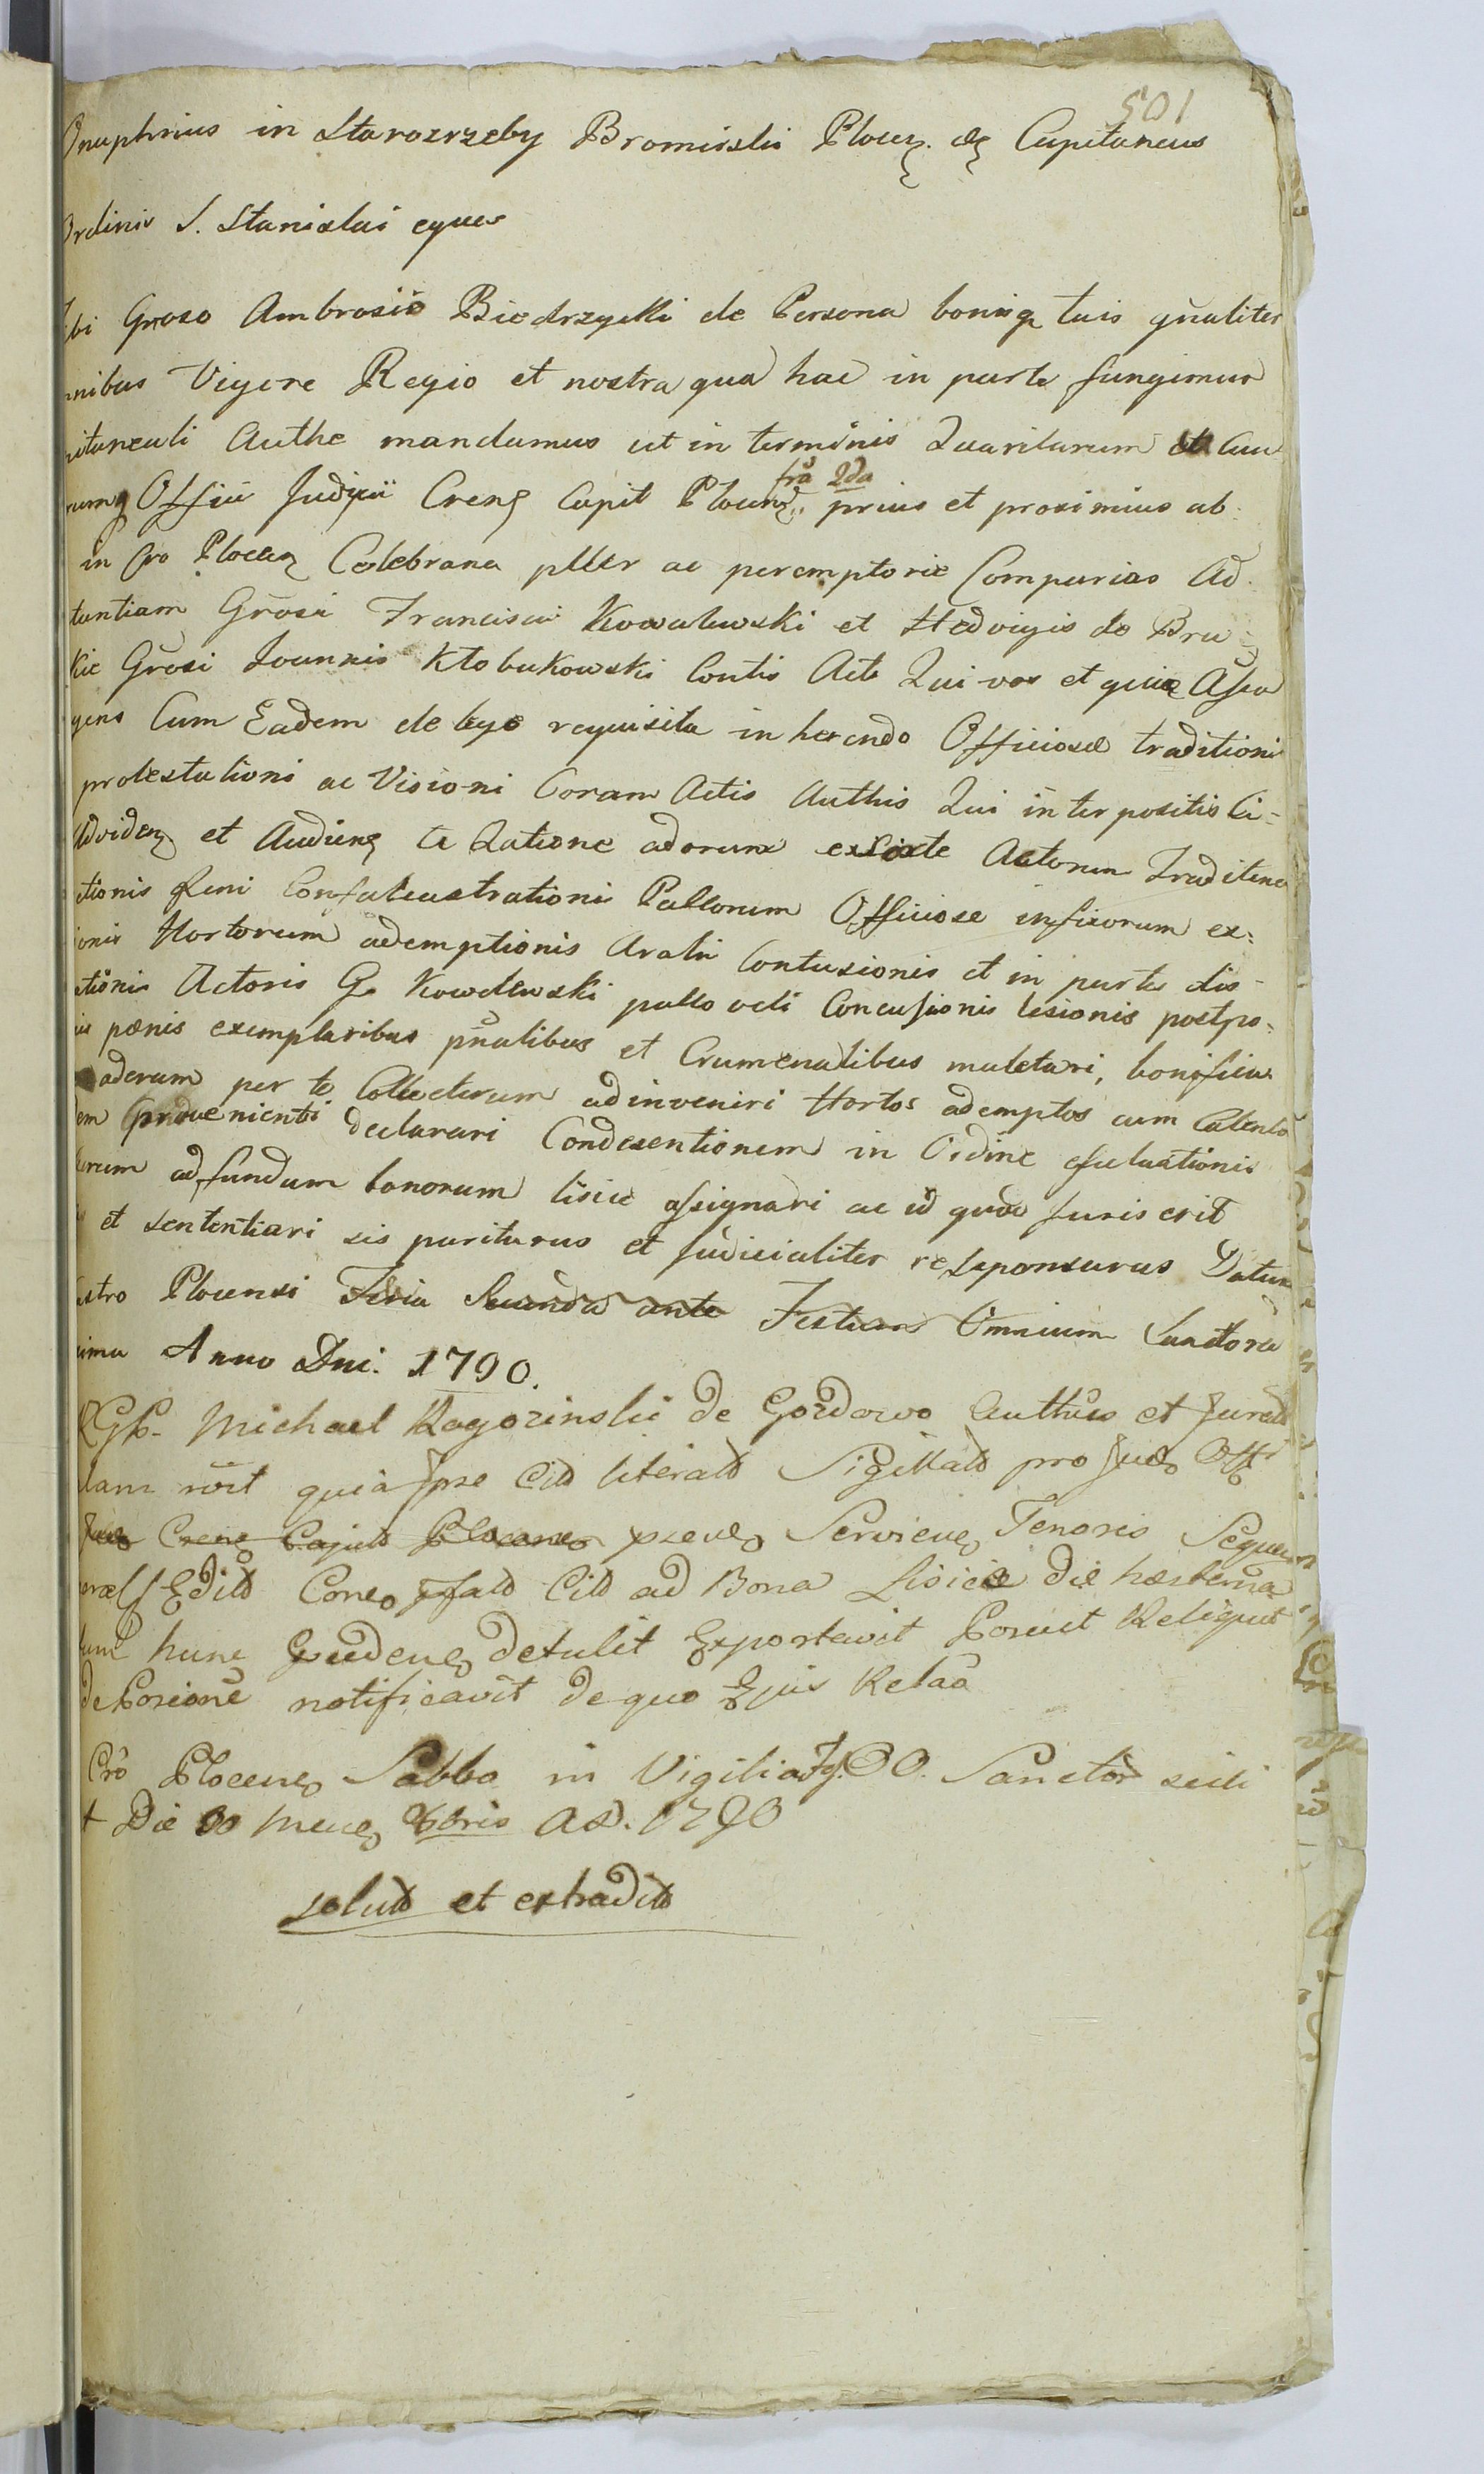 501
Onuphrius in Starozrzeby Bromirski Plocen. &c Capitaneus
Ordinis S. Stanislai eques
Tibi Groso Ambrosio Biedrzycki de Persona bonisq tuis gnaliter
nibus Vigore Regio et nostra qua hac in parte fungimur
itaneali Authe mandamus ut in terminis Quaritarum et Cau
rumq Officii Judicii Crens Capit Plocens fra 2da prius et proximius ab
in Cro Plocen Celebrana pller ac peremptorie Compareas Ad
tantiam Grosi Francisci Kowalewski et Hedvigis de Bru
kie Grosi Joannis Kłobukowski Contis Acto Qui vos et quia Assa
gens Cum Eadem de lege requisita in herendo Officiosae traditioni
protestationi ac Visioni Coram Actis Authis Qui interpositis Ci=
Advidens et Audiens te Ratione adorum ex Actorum Traditena
ctionis feni Officiose infixorum ex=
ionis Hortorum ademptionis Aratri Contusionis et in parte dis-
ationis Actoris G. Kowalewski pallo veli Concussionis lesionis postpo=
is poenis exemplaribus pnalibus et Crumenalibus mulctari, bonifica
adorum per te Collectorum adinveniri Hortos ademptos cum Calenda
em provenienti declarari Condescentionem in Ordine efuluationis
orum ad fundum bonorum Lisice assignari ac id quod Juris erit
et sententiari sis pariturus et Judicialiter responsurus Datum
astro Plocensi Feria Secunda ante Festum Omnium Sanctoru
ima Anno Dni. 1790.
RGP. Michael Ragozinski de Gozdowo Authus et Jurat
lam röit quia Ipse Citt literatt Sigillatt pro Jud Off
Jud Crens Capitt Plocens preng Serviens Tenoris Sequen
Editt Conco Citt ad Bona Lisice die hesterna
um hunc Eundeng detulit Exportavit Posuit Reliquit
de Posione notificavit de quo Ejus Relaa
Cro Ploceng Sabbo in Vigilia F. OO. Sanctor scili
t Die 30 Meng Xbris AD. 1790
solutt et extraditt